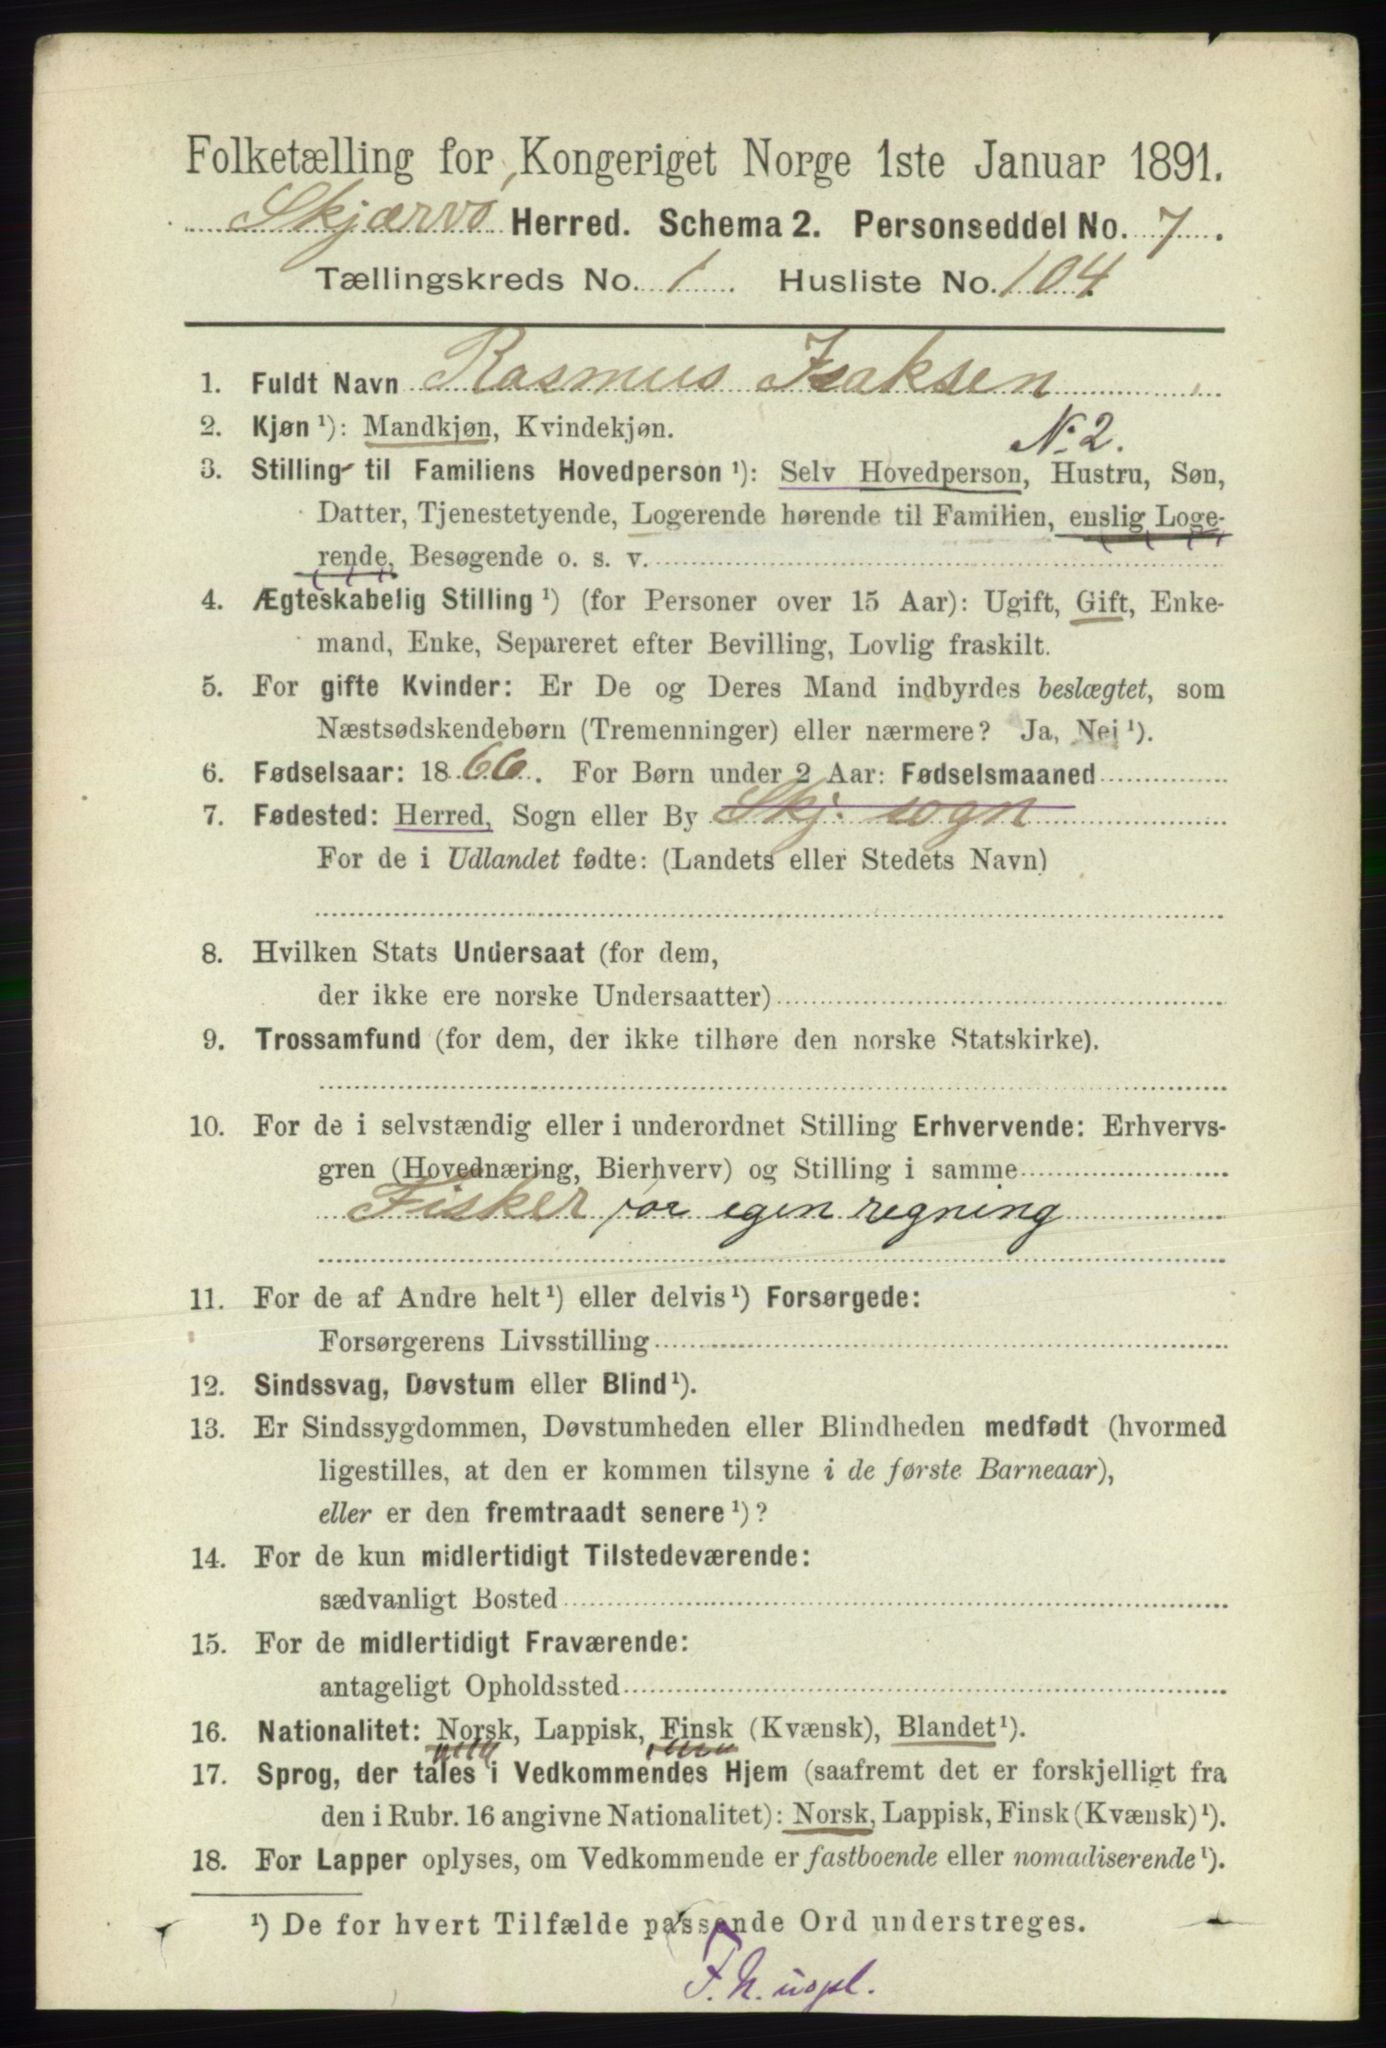 Folketælling for Kongeriget Norge 1ste Januar 1891.
Skjærvø Herred. Schema 2. Personseddel No. 7.
Tællingskreds No. 1 Husliste No. 104
1. Fuldt Navn Rasmus Isaksen
2. Kjøn ¹): Mandkjøn, Kvindekjøn.
N. 2.
3. Stilling til Familiens Hovedperson ¹): Selv Hovedperson, Hustru, Søn,
Datter, Tjenestetyende, Logerende hørende til Familien, enslig Loge-
rende, Besøgende o. s. v.
4. Ægteskabelig Stilling ¹) (for Personer over 15 Aar): Ugift, Gift, Enke-
mand, Enke, Separeret efter Bevilling, Lovlig fraskilt.
5. For gifte Kvinder: Er De og Deres Mand indbyrdes beslægtet, som
Næstsødskendebørn (Tremenninger) eller nærmere? Ja, Nei ¹).
6. Fødselsaar: 1866. For Børn under 2 Aar: Fødselsmaaned
7. Fødested: Herred, Sogn eller By Skj. sogn
For de i Udlandet fødte: (Landets eller Stedets Navn)
8. Hvilken Stats Undersaat (for dem,
der ikke ere norske Undersaatter)
9. Trossamfund (for dem, der ikke tilhøre den norske Statskirke).
10. For de i selvstændig eller i underordnet Stilling Erhvervende: Erhvervs-
gren (Hovednæring, Bierhverv) og Stilling i samme
Fisker for egen regning
11. For de af Andre helt ¹) eller delvis ¹) Forsørgede:
Forsørgerens Livsstilling
12. Sindssvag, Døvstum eller Blind ¹).
13. Er Sindssygdommen, Døvstumheden eller Blindheden medfødt (hvormed
ligestilles, at den er kommen tilsyne i de første Barneaar),
eller er den fremtraadt senere ¹)?
14. For de kun midlertidigt Tilstedeværende:
sædvanligt Bosted
15. For de midlertidigt Fraværende:
antageligt Opholdssted
16. Nationalitet: Norsk, Lappisk, Finsk (Kvænsk), Blandet ¹).
17. Sprog, der tales i Vedkommendes Hjem (saafremt det er forskjelligt fra
den i Rubr. 16 angivne Nationalitet): Norsk, Lappisk, Finsk (Kvænsk) ¹).
18. For Lapper oplyses, om Vedkommende er fastboende eller nomadiserende ¹).
¹) De for hvert Tilfælde passende Ord understreges.
F. N. uopl.